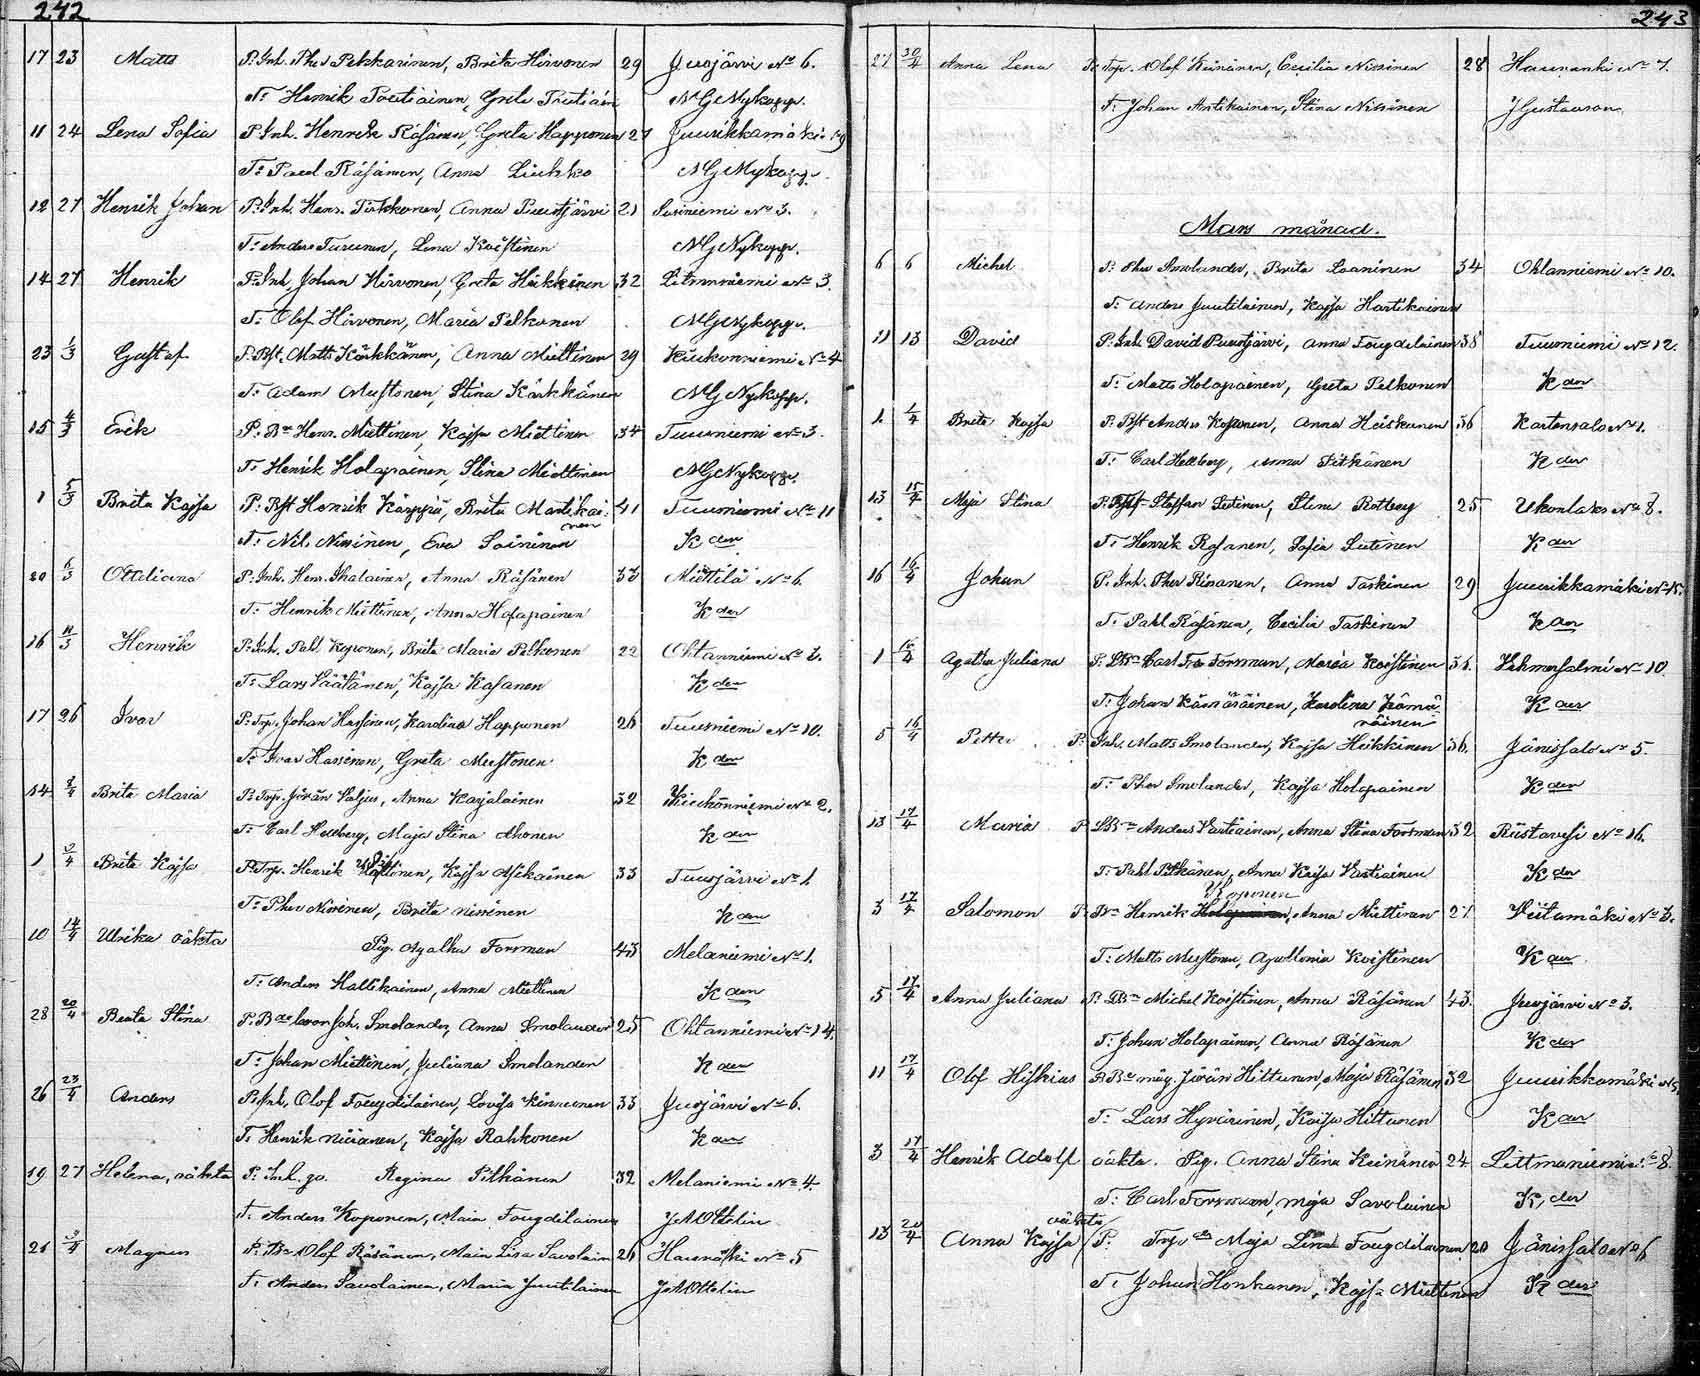 242
17 23 Matts P. Inh. Pher Pekkarinen, Brita Hirvonen 29 Jusjärvi No 6.
T: Henrik Poutiainen, Greta Poutiain NG Nykopp.
11 24 Lena Sofia P. Inh. Henrik Räsänen, Greta Happonen 27 Juurikkamäki 19
T: Paul Räsänen, Anna NG Nykopp.
12 27 Henrik Johan P. Inh. Henr. Pirkkonen, Anna Puustjärvi 21 Susiniemi No 3.
T: Anders Turunen, Lena Koistinen NG Nykopp.
14 27 Henrik P. Inh. Johan Hirvonen, Greta Heikkinen 32 Litmaniemi No 3.
T: Olof Hirvonen, Maria Pelkonen NG Nykopp.
23 1/3 Gustaf P. Bst. Matts Kärkkänen, Anna Miettinen 29 Kiukonniemi No 4
T: Adam Mustonen, Stina Kärkkänen NG Nykopp.
15 4/3 Erik P. Bn Henr. Miettinen, Kajsa Miettinen 34 Tuusniemi No 3.
T: Henrik Holapainen, Stina Miettinen NG Nykopp.
1 5/3 Brita Kajsa P. Bst Henrik Karppi, Brita Martikai- 41 Tuusniemi No 11
nen
T: Nils Nissinen, Eva Soininen K den
20 6/3 Ottiliana P. Inh. Henr. Ihalainen, Anna Räsänen 33 Miettilä No 6.
T: Henrik Miettinen, Anna Holapainen K den
16 11/3 Henrik P. Inh. Pahl Koponen, Brita Maria Pelkonen 22 Ohtanniemi No 3.
T: Lars Väätänen, Kajsa Kosanen K den
17 26 Ivar P. Torp. Johan Hassinen, Karolina Happonen 26 Tuusniemi No 10.
T: Ivar Hassinen, Greta Mustonen K den
14 2/4 Brita Maria P. Torp. Jöran Valjus, Anna Karjalainen 32 Kiukonniemi No 2.
T: Carl Hellberg, Maja Stina Ahonen K den
1 9/4 Brita Kajsa P. Torp. Henrik Kajsa Asikainen 33 Tuusjärvi No 1.
T: Pher Nissinen, Brita Nissinen K den
10 14/4 Ulrika oäkta Pig. Agatha Forsman 43 Melaniemi No 1.
T: Anders Hallikainen, Anna Miettinen K den
28 20/4 Beata Stina P. Bdeson Joh. Smolander, Anna Smolander 25 Ohtanniemi No 14.
T: Johan Miettinen, Juliana Smolander K den
26 23/4 Anders P. Inh. Olof Fougdilainen, Lovisa Kinnunen 33 Jusjärvi No 6.
T: Henrik Kajsa Rahkonen K den
19 27 Helena, oäkta P. Inh. Regina Pitkänen 32 Melaniemi No 4.
T: Anders Koponen, Maria Fougdilainen JAOttelin
21 3/4 Magnus P. Bn Olof Räsänen, Maria Lisa Savolain 26 No 5
T: Anders Savolainen, Maria Juutilainen JAOttelin
243
27 30/4 Anna Lena P. Torp. Olof Keinänen, Cecilia Nissinen 28 Haunanki No 7.
T: Johan Antikainen, Stina Nissinen JGustavson
Mars månad.
6 6 Michel P. Pher Smolander, Brita Laaninen 34 Ohtanniemi No 10.
T: Anders Juutilainen, Kajsa Hartikainen
11 13 David P. Inh. David Puustjärvi, Anna Fougdilainen 38 Tuusniemi No 12.
T: Matts Holapainen, Greta Pelkonen K den
1. 1/4 Brita Kajsa P. Bst Anders Kosunen, Anna Heiskanen 36 Kartensalo No 1.
T: Carl Hellberg, Anna Pitkänen K den
13 15/4 Maja Stina P. Bst Staffan Lutinen, Stina Rotberg 25 Ukonlaks No 8.
T: Henrik Rosanen, Sofia Lutinen K den
16 16/4 Johan P. Inh. Pher Anna Taskinen 29 Juurikkamäki No 15.
T: Pahl Räsänen, Cecilia Taskinen K den
1 16/4 Agatha Juliana P. Bn Carl Fr. Forsman, Maria Koistinen 31. Vehmersalmi No 10.
T: Johan Kämäräinen, Karolina Kämä- K den
räinen
5 16/4 Petter P. Inh. Matts Smolander, Kajsa Heikkinen 36. Jänissalo No 5.
T: Pher Smolander, Kajsa Holapainen K den
13 17/4 Maria P. Bn Anders Vartiainen, Anna Stina Forsman 32. Riistavesi No 16.
T: Pahl Pitkänen, Anna Kajsa Vartiainen K den
Koponen
3 17/4 Salomon P. Bn Henrik Holapainen, Anna Miettinen 27 Viitamäki No 3.
T: Matts Mustonen, Apollonia Koistinen K den
5 17/4 Anna Juliana P. Bn Michel Koistinen, Anna Räsänen 43. Jusjärvi No 3.
T: Johan Holapainen, Anna Räsänen K den
11 17/4 Olof Hiskias P. Bn måg. Jöran Hiltunen, Maja Räsänen 32 Juurikkamäki No 5.
T: Lars Hyvärinen, Kajsa Hiltunen K den
3 17/4 Henrik Adolf oäkta. Pig. Anna Stina Keinänen 24 Littmaniemi No 8.
T: Carl Forsman, Maja Savolainen K den
oäkta
13 20/4 Anna Kajsa P: Torp dr Maja Lena Fougdilainen 20 Jänissalo No 6
T: Johan Honkanen, Kajsa Miettinen K den